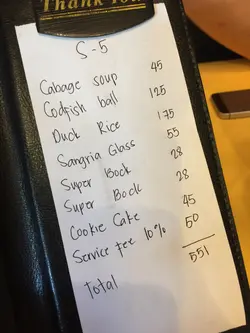 Thank You
S-5
Cabage soup 45
Codfish ball 125
Duck Rice 175
Sangria Glass 55
Super Bock 28
Super Bock 28
Cookie Cake 45
Service fee 10% 50
551
Total